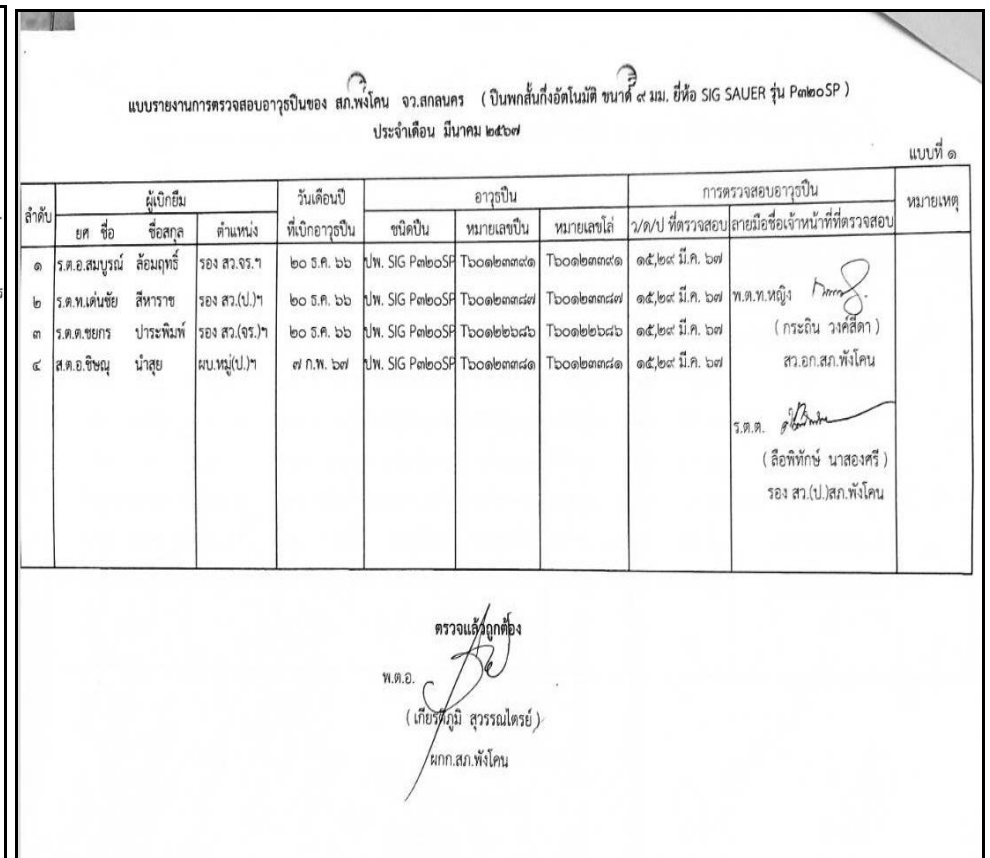 แบบรายงานการตรวจสอบอาวุธปืนของ สภ.พังโคน จว.สกลนคร ( ปืนพกสั้นกึ่งอัตโนมัติ ขนาด ๙ มม. ยี่ห้อ SIG SAUER รุ่น P๓๒๐SP )
ประจำเดือน มีนาคม ๒๕๖๗
แบบที่ ๑
ลำดับ ผู้เบิกยืม วันเดือนปี อาวุธปืน การตรวจสอบอาวุธปืน หมายเหตุ
ยศ ชื่อ ชื่อสกุล ตำแหน่ง ที่เบิกอาวุธปืน ชนิดปืน หมายเลขปืน หมายเลขโล่ ว/ด/ป ที่ตรวจสอบ ลายมือชื่อเจ้าหน้าที่ที่ตรวจสอบ
๑ ร.ต.อ.สมบูรณ์ ล้อมฤทธิ์ รอง สว.จร.ฯ ๒๐ ธ.ค. ๖๖ ปพ. SIG P๓๒๐SP T๖๐๑๒๓๓๙๑ T๖๐๑๒๓๓๙๑ ๑๕,๒๙ มี.ค. ๖๗
๒ ร.ต.ท.เด่นชัย สีหาราช รอง สว.(ป.)ฯ ๒๐ ธ.ค. ๖๖ ปพ. SIG P๓๒๐SP T๖๐๑๒๓๓๘๗ T๖๐๑๒๓๓๘๗ ๑๕,๒๙ มี.ค. ๖๗ พ.ต.ท.หญิง
๓ ร.ต.ต.ชยกร ปาระพิมพ์ รอง สว.(จร.)ฯ ๒๐ ธ.ค. ๖๖ ปพ. SIG P๓๒๐SP T๖๐๑๒๒๖๘๖ T๖๐๑๒๒๖๘๖ ๑๕,๒๙ มี.ค. ๖๗ ( กระถิน วงค์สีดา )
๔ ส.ต.อ.ชิษณุ นำสุย ผบ.หมู่(ป.)ฯ ๗ ก.พ. ๖๗ ปพ. SIG P๓๒๐SP T๖๐๑๒๓๓๘๑ T๖๐๑๒๓๓๘๑ ๑๕,๒๙ มี.ค. ๖๗ สว.อก.สภ.พังโคน
ร.ต.ต.
( ลือพิทักษ์ นาสองศรี )
รอง สว.(ป.)สภ.พังโคน
ตรวจแล้วถูกต้อง
พ.ต.อ.
( เกียรติภูมิ สุวรรณไตรย์ )
ผกก.สภ.พังโคน